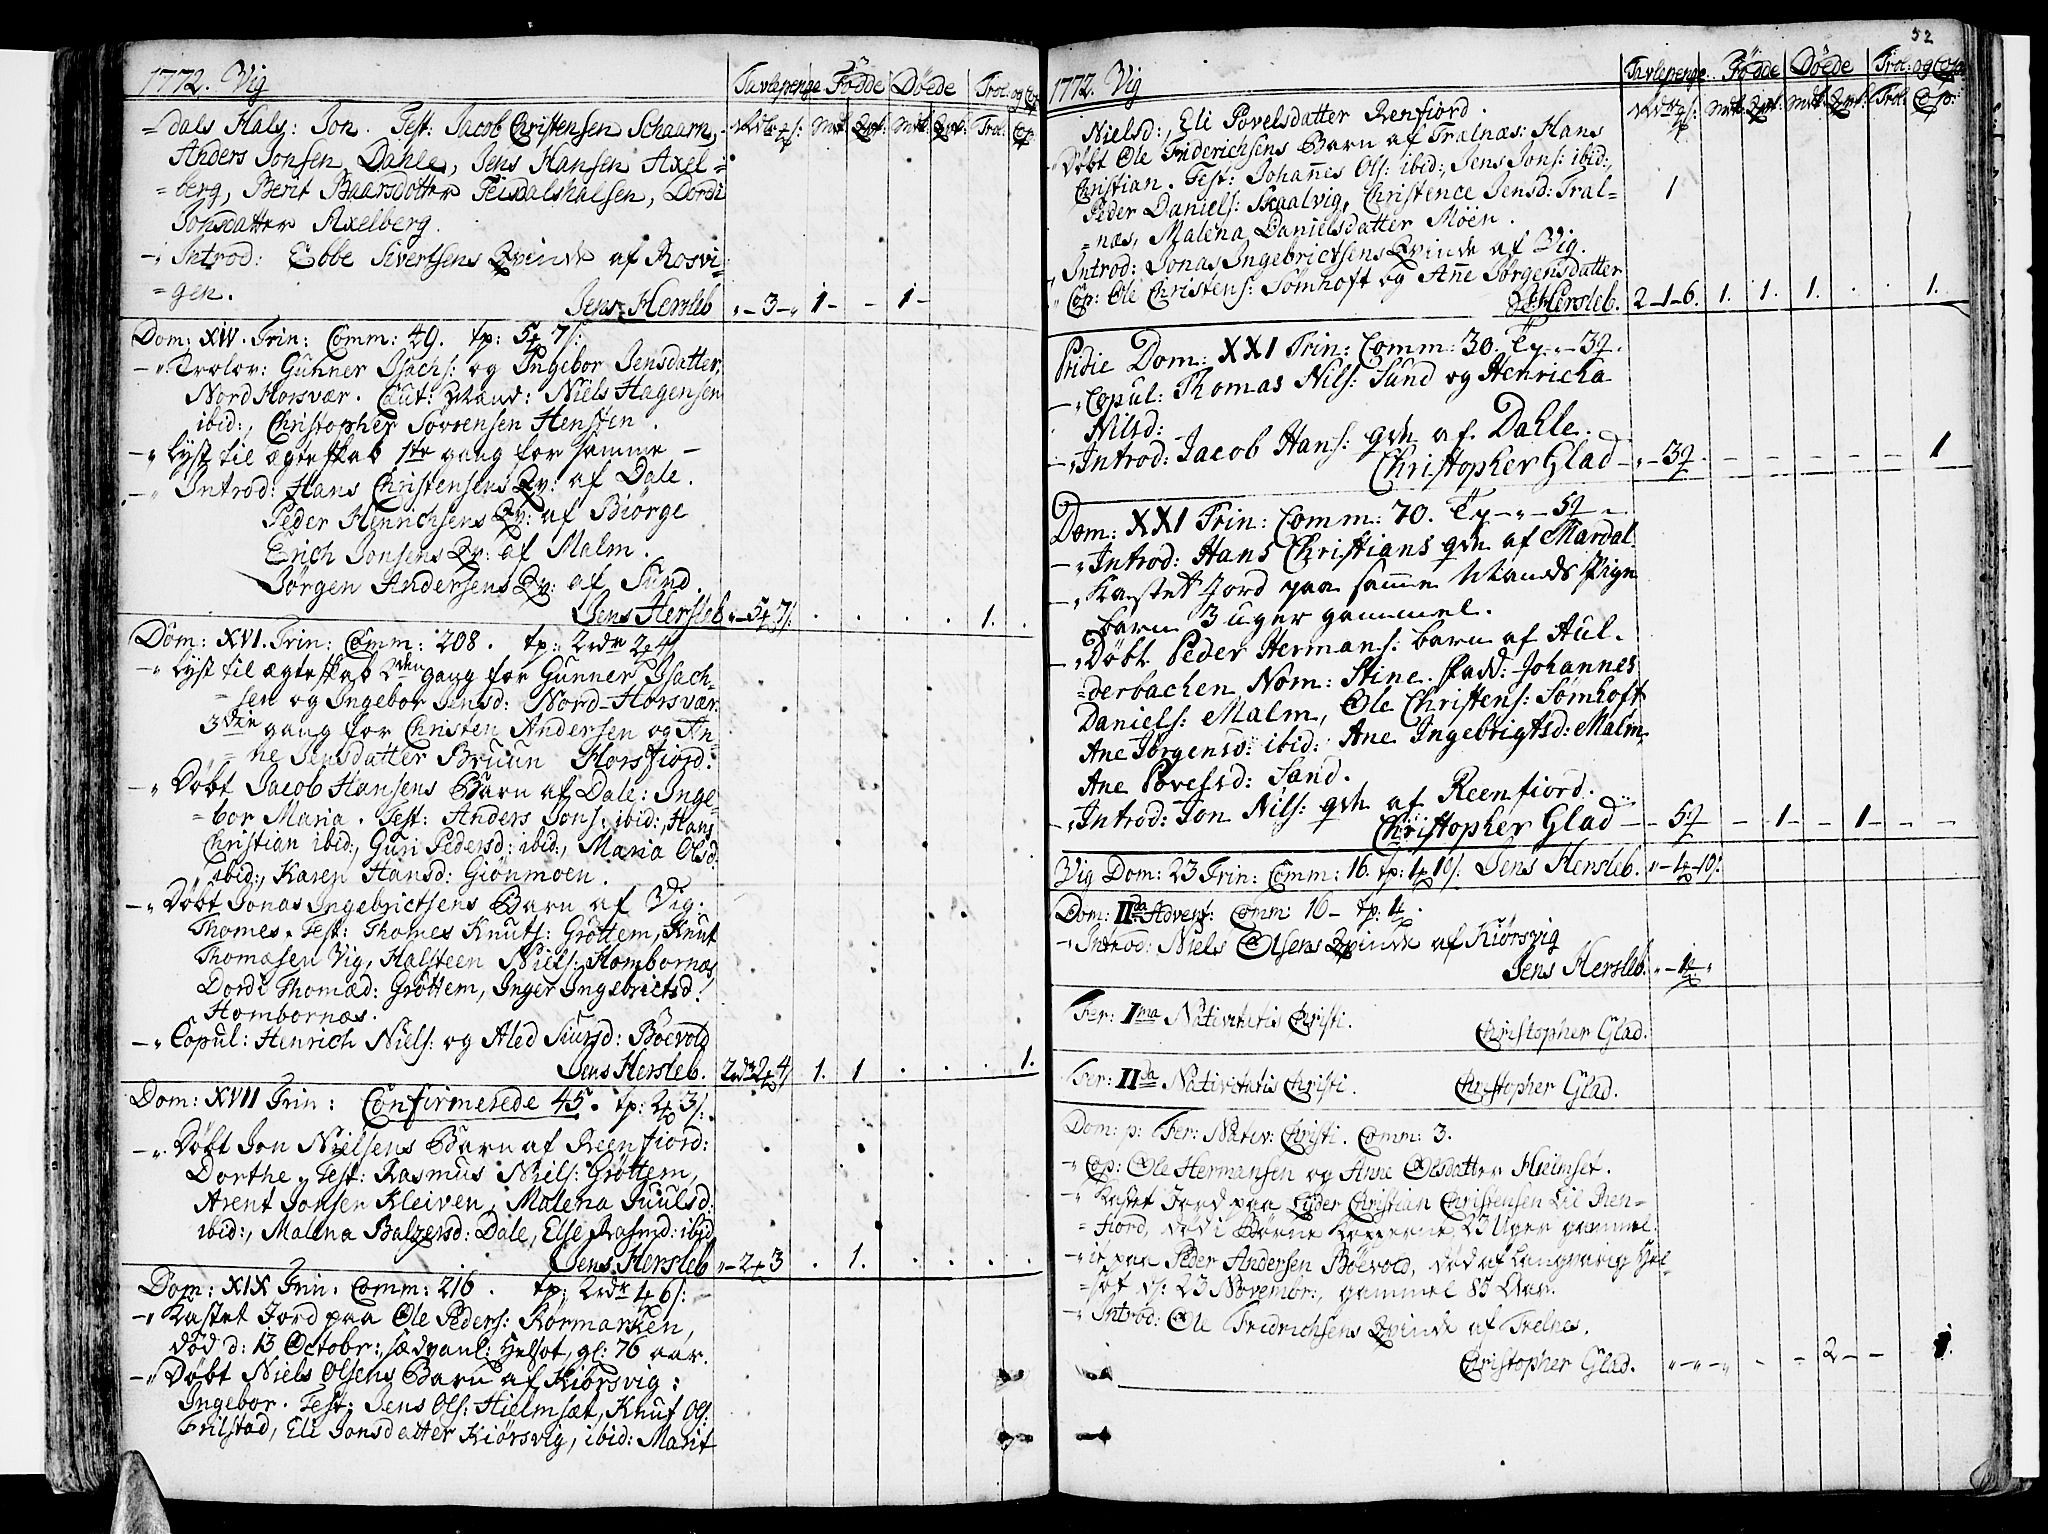 1772. Vig Tavlepenge Födde Döede Trol: og Cop
=dals Hals: Jon. Test: Jacob Christensen Schaarn,
Anders Jonsen Dahle, Jens Hansen Axel=
=berg, Berit Baarsdötter Teisdalshalsen, Dordi
Jonsdatter Axelberg.
Introd: Ebbe Sivertsens Qvinde af Rosvi=
=gen.
Jens Hersleb „-3-„ 1- - 1-
Dom: XIV. Trin: Comm: 49. tp: 5 7/:
-„ Trolov: Gunner Isachs: og Ingebor Jensdatter
Nord Horsvær. Caut: Mænd: Niels Hagensen
ibid:, Christopher Sörrensen Hensten.
-„ Lyst til ægteskab 1ste gang for samme -
-„ Introd: Hans Christensens Qv: af Dale.
Peder Hinrichsens Qv: af Biörge
Erich Jonsens Qv: af Malm.
Jörgen Andersens Qv: af Sund.
Jens Hersleb „-5 7/: . . . . 1. .
Dom: XVI. Trin: Comm: 208. tp: 2rdr 2 4
-„ Lyst til ægteskab 2den gang for Gunner Isach=
=sen og Ingebor Jensd: Nord-Horsvær.
3die gang for Christen Andersen og An=
=ne Jensdatter Bruun Horsfiord:
-„ Döbt Jacob Hansens Barn af Dale: Inge=
=bor Maria. Test: Anders Jons: ibid:, Hans
Christian ibid:, Guri Pedersd: ibid:, Maria Olsd:
ibid:, Karen Hansd: Giönmoen.
-„ Döbt Jonas Ingebrictsens Barn af Vig:
Thomes. Test: Thomes Knuts: Gröttem, Knut
Thomasen Vig, Halsteen Niels: Hombornæs
Dordi Thomæd: Gröttem, Inger Ingebrictsd:
Hombornæs.
-„ Copul: Henrich Niels: og Aled Siursd: Böevold
Jens Hersleb. 2rdr 2 4/ 1. 1 . . . 1.
Dom: XVII Trin: Confirmerede 45. tp: 2 3/:
-„ Döbt Jon Nielsens Barn af Reenfiord:
Dorthe. Test: Rasmus Niels: Gröttem,
Arent Jonsen Kleiven, Malena Juulsd:
ibid:, Malena Balzersd: Dale, Else Rasmd: ibid
Jens Hersleb „-2 3 . 1. . . . .
Dom: XIX Trin. Comm: 216. tp: 2rdr 4 6/:
-„ Kastet Jord paa Ole Peders: Kormarken,
död d: 13 Octobr:, sædvanl: Helsot, gl: 76 aar.
-„ Döbt Niels Olsens Barn af Kiörsvig:
Ingebor. Test: Jens Ols: Hielmsæt, Knut Ols:
Trilstad, Eli Jonsdatter Kiörsvig, ibid: Marit
52
1772. Vig Tavlepenge. Födde Döede Trol: og Cop:
Nielsd:, Eli Povelsdatter Renfiord.
Döbt Ole Friderichsens Barn af Tralnæs: Hans
Christian. Test: Johannes Ols: ibid:, Jens Jons: ibid:,
Peder Daniels: Skaalvig, Christence Jensd: Tral=
=næs, Malena Danielsdatter Möen.
Introd: Jonas Ingebrictsens Qvinde af Vig.
Cop: Ole Christens: Sömhoft og Anne Jörgensdatter
Hersleb. 2-1-6. 1. 1. 1. . . 1.
Pridie Dom: XXI Trin: Comm: 30. Tp „-3
-„ Copul: Thomas Nils: Sund og Henricha
Nilsd:
-„ Introd: Jacob Hans: qvn af Dahle.
Christopher Glad -„-3 - - - - - 1
Dom: XXI Trin: Comm: 70. Tp -„- 5
-„ Introd: Hans Christians qvn af Mardal.
-„ Kastet Jord paa samme Mands Pige
barn 3 uger gammel.
-„ Döbt Peder Hermans: barn af Aul=
=derbachen Nom: Stine. Fadd: Johannes
Daniels: Malm, Ole Christens: Sömhoft
Ane Jörgensd: ibid: Ane Ingebrigtsd: Malm,
Ane Povelsd: Sand.
-„ Introd: Jon Nils: qvn af Reenfiord.
Christopher Glad - - 5 - 1 - 1 - -
Vig Dom: 23 Trin: Comm: 16. tp: 1 10/: Jens Hersleb. „-1-10/:
Dom: IIda Advent: Comm: 16- tp: 1
-„ Introd: Niels Olsens Qvinde af Kiörsvig
Jens Hersleb. „-1-„
Fer: Ima Nativitatis Christi. Christopher Glad.
Fer: IIda Nativitatis Christi. Christopher Glad.
Dom: p: Fer: Nativ: Christi. Comm: 3.
-„ Cop: Ole Hermansen og Anne Olsdatter Hielmset.
-„ Kastet Jord paa Lyder Christian Christensen Lil Ren=
=fiord, död i Börne Kopperne, 23 Uger gammel.
-„ it paa Peder Andersen Böevold, död af langvarig Hel=
=sot d: 23 Novembr:, gammel 85 Aar.
-„ Introd: Ole Fredrichsens Qvinde af Trelnes.
Christopher Glad. „-„-„ - - 2 - - 1.